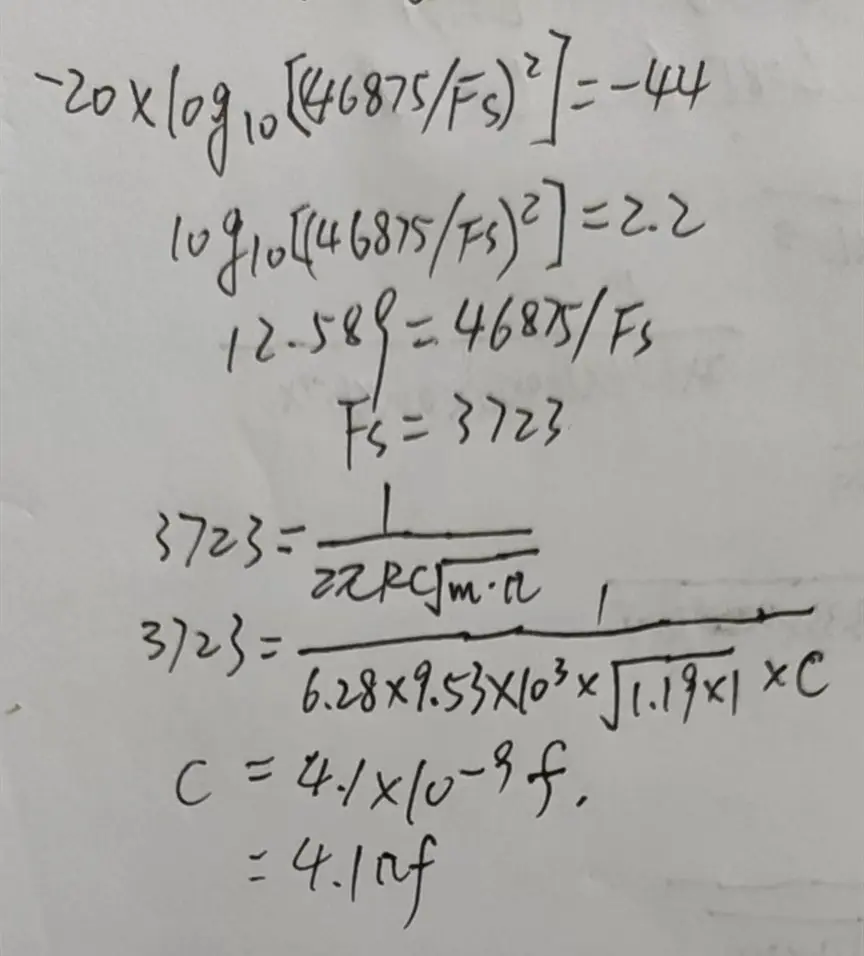 -20×log₁₀[(46875/Fs)²]=-44
log₁₀[(46875/Fs)²]=2.2
12.589=46875/Fs
Fs=3723
3723=1/(2πRC√(m·n))
3723=1/(6.28×9.53×10³×√(1.19×1)×C)
C=4.1×10⁻⁹f.
=4.1nf